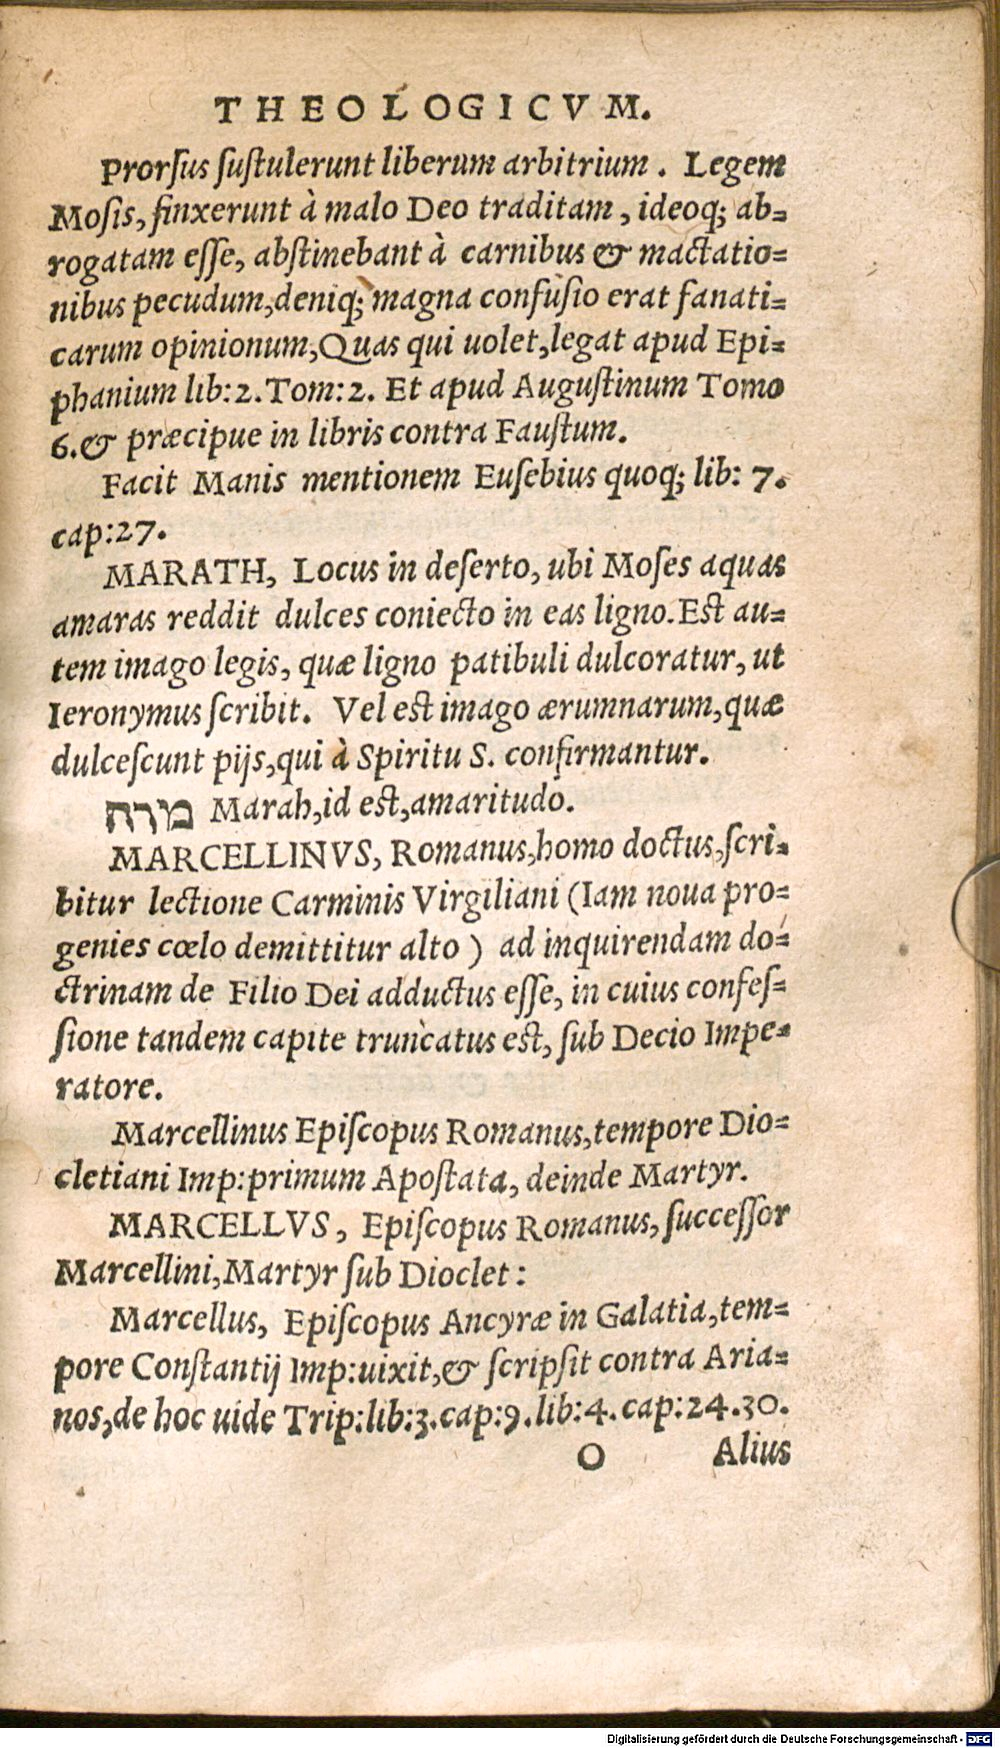 THEOLOGICVM.
Prorſus ſuſtulerunt liberum arbitrium. Legem
Moſis, finxerunt à malo Deo traditam, ideoq; ab-
rogatam eſſe, abſtinebant à carnibus & mactatio-
nibus pecudum, deniq; magna confuſio erat fanati-
carum opinionum, Quas qui uolet, legat apud Epi-
phanium lib: 2. Tom: 2. Et apud Auguſtinum Tomo
6. & præcipue in libris contra Fauſtum.
Facit Manis mentionem Euſebius quoq; lib: 7.
cap: 27.
MARATH, Locus in deſerto, ubi Moſes aquas
amaras reddit dulces coniecto in eas ligno. Eſt au-
tem imago legis, quæ ligno patibuli dulcoratur, ut
Ieronymus ſcribit. Vel eſt imago ærumnarum, quæ
dulceſcunt pijs, qui à Spiritu S. confirmantur.
מרה Marah, id eſt, amaritudo.
MARCELLINVS, Romanus, homo doctus, ſcri-
bitur lectione Carminis Virgiliani (Iam noua pro-
genies cœlo demittitur alto) ad inquirendam do-
ctrinam de Filio Dei adductus eſſe, in cuius confeſ-
ſione tandem capite truncatus eſt, ſub Decio Impe-
ratore.
Marcellinus Epiſcopus Romanus, tempore Dio-
cletiani Imp: primum Apoſtata, deinde Martyr.
MARCELLVS, Epiſcopus Romanus, ſucceſſor
Marcellini, Martyr ſub Dioclet:
Marcellus, Epiſcopus Ancyræ in Galatia, tem-
pore Conſtantij Imp: uixit, & ſcripſit contra Aria-
nos, de hoc uide Trip: lib: 3. cap: 9. lib: 4. cap: 24. 30.
O Alius
Digitalisierung gefördert durch die Deutsche Forschungsgemeinschaft - DFG